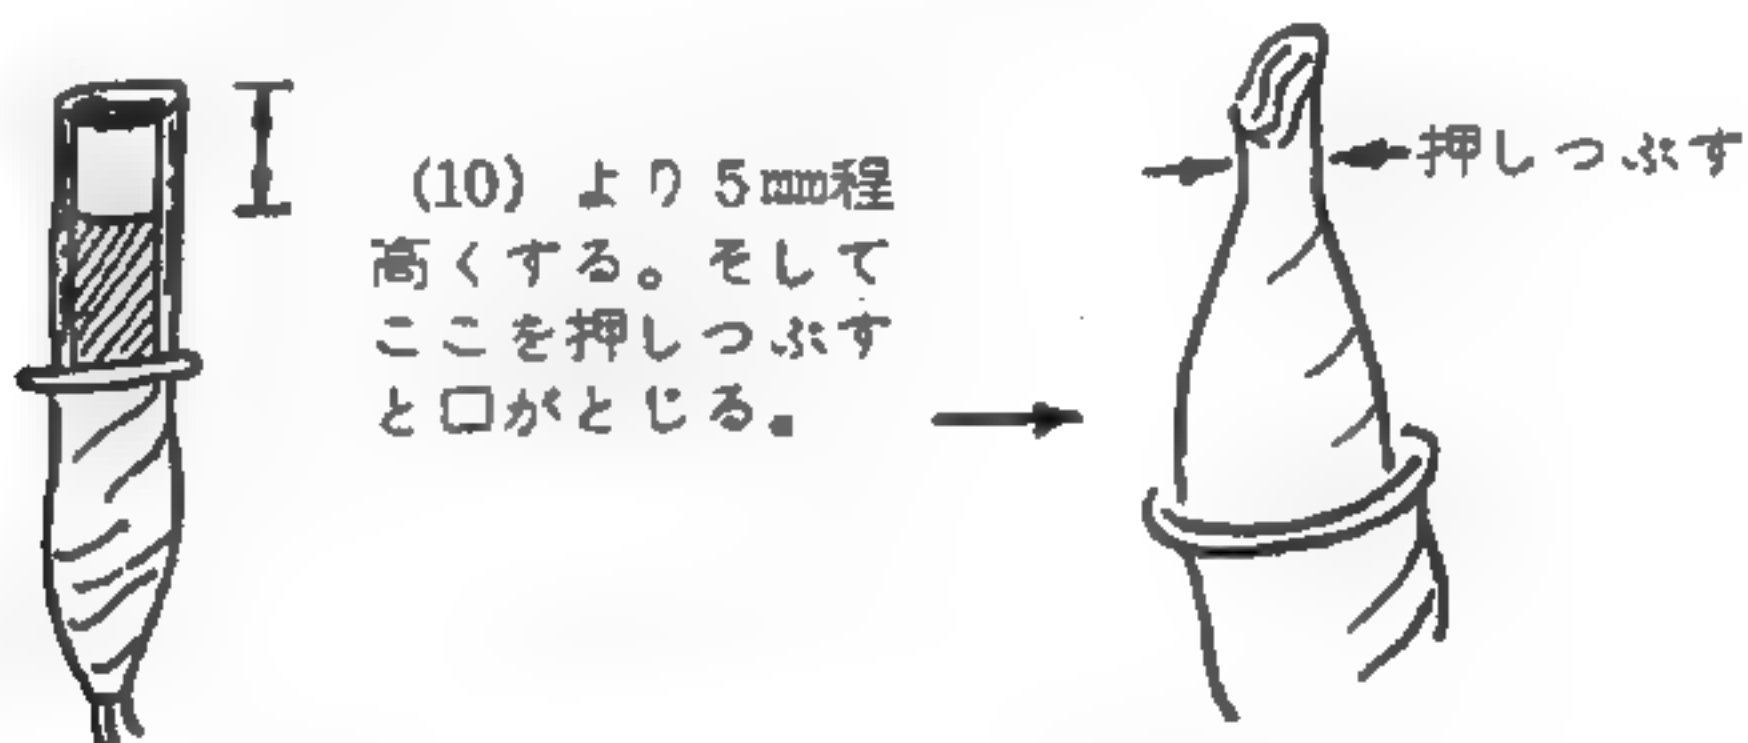 (10) より5mm程
高くする。そして
ここを押しつぶす
と口がとじる。
押しつぶす